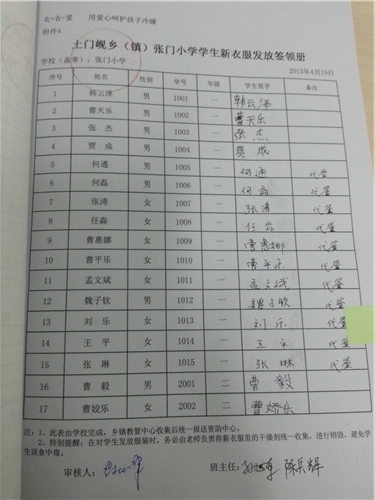 衣+衣=爱 用爱心呵护孩子冷暖
附件4
土门岘乡（镇）张门小学学生新衣服发放签领册
学校（盖章）：张门小学 2013年4月19日
序号 姓名 性别 学号 年级 学生签字 备注
1 韩云泽 男 1001 一 韩云泽
2 曹天乐 男 1002 一 曹天乐
3 张杰 男 1003 一 张杰
4 贾成 男 1004 一 贾成
5 何通 男 1005 一 何通 代签
6 何磊 男 1006 一 何磊 代签
7 张涛 女 1007 一 张涛 代签
8 任淼 女 1008 一 任淼 代签
9 曹惠娜 女 1009 一 曹惠娜 代签
10 曹平乐 女 1010 一 曹平乐 代签
11 孟文斌 女 1011 一 孟文斌 代签
12 魏子钦 男 1012 一 魏子钦 代签
13 刘乐 女 1013 一 刘乐 代签
14 王平 女 1014 一 王平 代签
15 张琳 女 1015 一 张琳 代签
16 曹毅 男 2001 二 曹毅
17 曹姣乐 女 2002 二 曹娇乐
注：1、此表由学校完成，乡镇教管中心收集后统一报送资助中心。
2、特别提醒：在对学生发放服装时，务必由老师负责将新衣服里的干燥剂统一收集，进行销毁，避免学
生误食中毒。
审核人： 班主任：